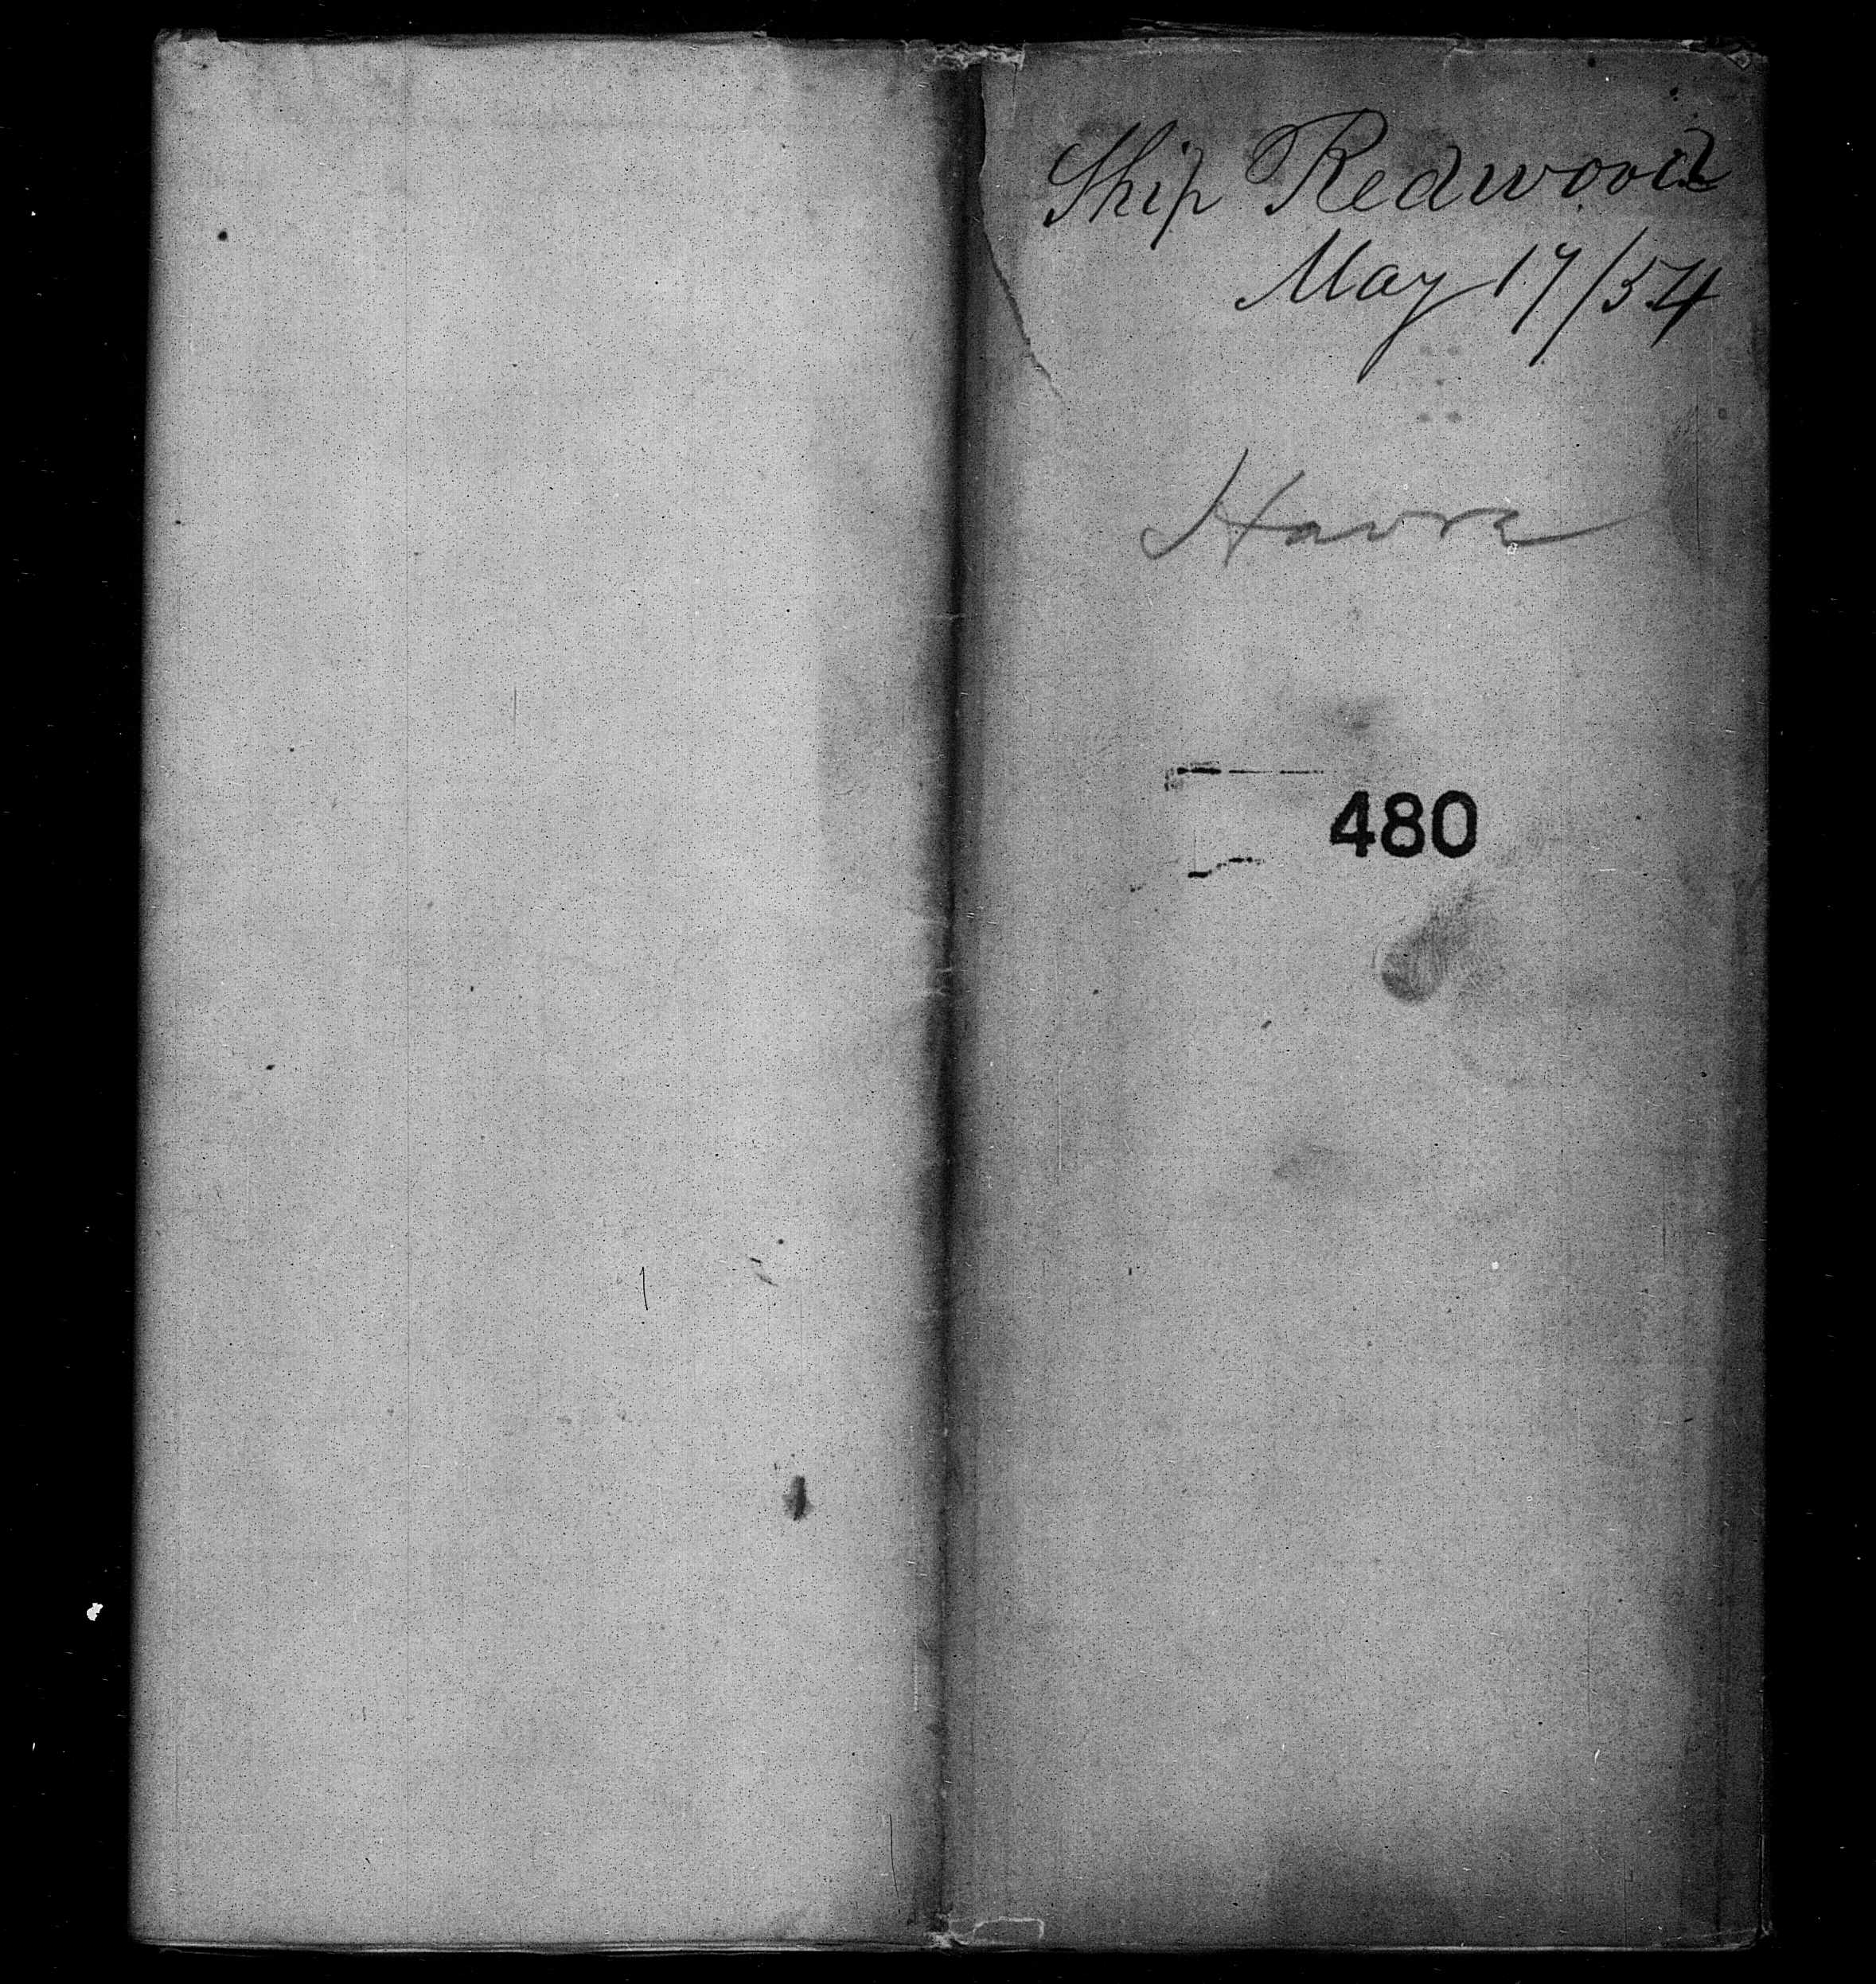 Ship Redwood
May 17/54
Havre
480